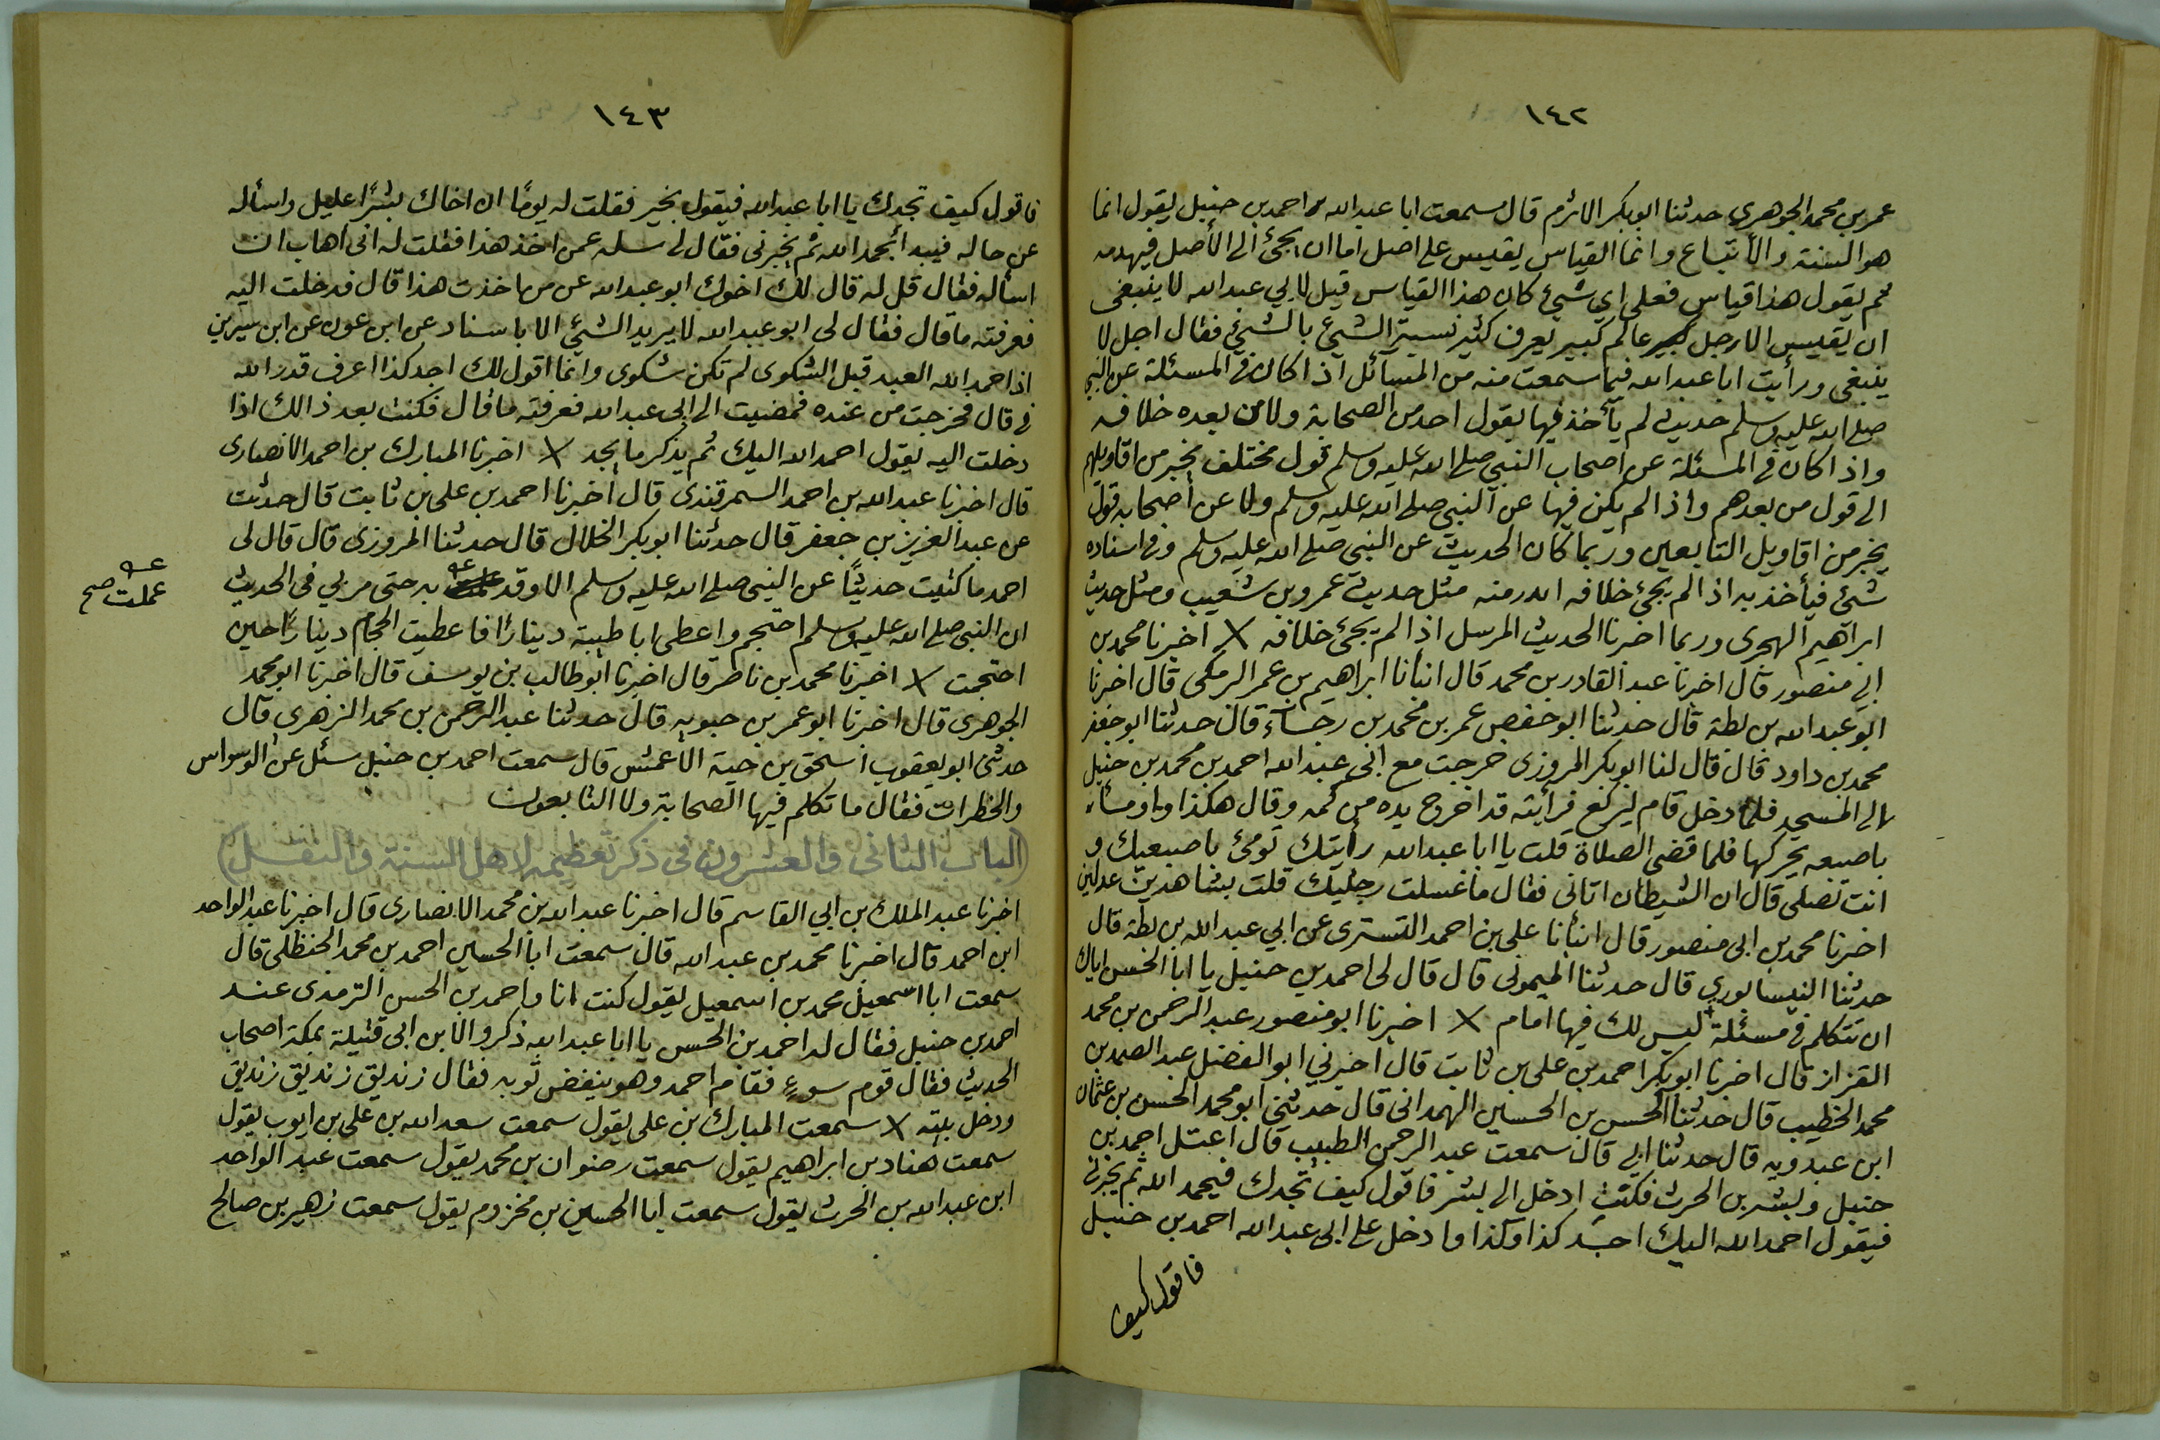 ١٤٢
عمر بن محمد الجوهري حدثنا ابو بكر الاثرم قال سمعت ابا عبد الله احمد بن حنبل يقول انما
هو السنة والأتباع وانما القياس يقيس على اصل اما ان يجئ الى الأصل فيهدمه
ثم يقول هذا قياس فعلى اي شئ كان هذا القياس قيل لابي عبد الله لا ينبغى
ان يقيس الا رجل عالم كبير يعرف كيف يشبه الشئ بالشئ فقال اجل لا
ينبغى ورأيت ابا عبد الله فيما سمعت منه من المسائل اذا كان فى المسئلة عن النبى
صلى الله عليه وسلم حديث لم يأخذ فيها بقول احد من الصحابة ولا من بعده خلافه
واذا كان فى المسئلة عن اصحاب النبى صلى الله عليه وسلم قول مختلف يخير من اقاويلهم
الى قول من بعدهم واذا لم يكن فيها عن النبى صلى الله عليه وسلم ولا عن أصحابه قول
يخير من اقاويل التابعين وربما كان الحديث عن النبى صلى الله عليه وسلم وفى اسناده
شئ فيأخذ به اذا لم يجئ خلافه اثبت منه مثل حديث عمرو بن شعيب ومثل حديث
ابراهيم الهجرى وربما اخبرنا الحديث المرسل اذا لم يجئ خلافه × اخبرنا محمد بن
ابى منصور قال اخبرنا عبد القادر بن محمد قال انبأنا ابراهيم بن عمر البرمكى قال اخبرنا
ابو عبد الله بن بطة قال حدثنا ابو حفص عمر بن محمد بن رجاء قال حدثنا ابو جعفر
محمد بن داود قال قال لنا ابو بكر المروزى خرجت مع ابى عبد الله احمد بن محمد بن حنبل
الى المسجد فلما دخل قام ليركع فرأيته قد اخرج يده من كمه وقال هكذا واومأ
باصبعه يحركها فلما قضى الصلاة قلت يا ابا عبد الله رأيتك تومئ باصبعيك و
انت تصلى قال ان الشيطان اتانى فقال ما غسلت رجليك قلت بشاهدين عدلين
اخبرنا محمد بن ابى منصور قال انبأنا على بن احمد التسترى عن ابي عبد الله بن بطة قال
حدثنا النيسابوري قال حدثنا الميمونى قال قال لى احمد بن حنبل يا ابا الحسن اياك
ان تتكلم فى مسئلة ليس لك فيها امام × اخبرنا ابو منصور عبد الرحمن بن محمد
القزاز قال اخبرنا ابو بكر احمد بن على بن ثابت قال اخبرني ابو الفضل عبد الصمد بن
محمد الخطيب قال حدثنا الحسن بن الحسين الهمدانى قال حدثنى ابو محمد الحسن بن عثمان
ابن عبدويه قال حدثنا ابى قال سمعت عبد الرحمن الطبيب قال اعتل احمد بن
حنبل وبشر بن الحرث فكنت ادخل الى بشر فاقول كيف تجدك فيحمد الله ثم يخبرنى
فيقول احمد الله اليك اجد كذا وكذا وادخل على ابى عبد الله احمد بن حنبل
فاقول كيف
١٤٣
فاقول كيف تجدك يا ابا عبد الله فيقول بخير فقلت له يومًا ان اخاك بشرًا عليل واسأله
عن حاله فيبدأ بحمد الله ثم يخبرنى فقال لى سله عمن اخذ هذا فقلت له انى اهاب ان
اسأله فقال قل له قال لك اخوك ابو عبد الله عن من اخذت هذا قال فدخلت اليه
فعرفته ما قال فقال لى ابو عبد الله لا يريد الشئ الا باسناد عن ابن عون عن ابن سيرين
اذا حمد الله العبد قبل الشكوى لم تكن شكوى وانما اقول لك اجد كذا اعرف قدرة الله
فى قال فخرجت من عنده فمضيت الى ابى عبد الله فعرفته ما قال فكنت بعد ذالك اذا
دخلت اليه يقول احمد الله اليك ثم يذكر ما يجد × اخبرنا المبارك بن احمد الانصارى
قال اخبرنا عبد الله بن احمد السمرقندى قال اخبرنا احمد بن على بن ثابت قال حدثت
عن عبد العزيز بن جعفر قال حدثنا ابو بكر الخلال قال حدثنا المروزى قال قال لى
احمد ما كتبت حديثًا عن النبى صلى الله عليه وسلم الا وقد به حتى مر بي فى الحديث
عملت صح
ان النبى صلى الله عليه وسلم احتجم واعطى ابا طيبة دينارًا فاعطيت الحجام دينارًا حين
احتجمت × اخبرنا محمد بن ناصر قال اخبرنا ابو طالب بن يوسف قال اخبرنا ابو محمد
الجوهرى قال اخبرنا ابو عمر بن حبويه قال حدثنا عبد الرحمن بن محمد الزهرى قال
حدثنى ابو يعقوب اسحق بن حية الأعمش قال سمعت احمد بن حنبل سئل عن الوسواس
والخطرات فقال ما تكلم فيها الصحابة ولا التابعون
(الباب الثانى والعشرون فى ذكر تعظيمه لاهل السنة والنقل)
اخبرنا عبد الملك بن ابي القاسم قال اخبرنا عبد الله بن محمد الانصارى قال اخبرنا عبد الواحد
ابن احمد قال اخبرنا محمد بن عبد الله قال سمعت ابا الحسين احمد بن محمد الحنظلى قال
سمعت ابا اسمعيل محمد بن اسمعيل يقول كنت انا واحمد بن الحسن الترمذى عند
احمد بن حنبل فقال له احمد بن الحسن يا ابا عبد الله ذكروا لابن ابى قتيلة بمكة اصحاب
الحديث فقال قوم سوء فقام احمد وهو ينفض ثوبه فقال زنديق زنديق زنديق
ودخل بيته × سمعت المبارك بن على يقول سمعت سعد الله بن على بن ايوب يقول
سمعت هناد بن ابراهيم يقول سمعت رضوان بن محمد يقول سمعت عبد الواحد
ابن عبد الله بن الحرث يقول سمعت ابا الحسين بن مخزوم يقول سمعت زهير بن صالح